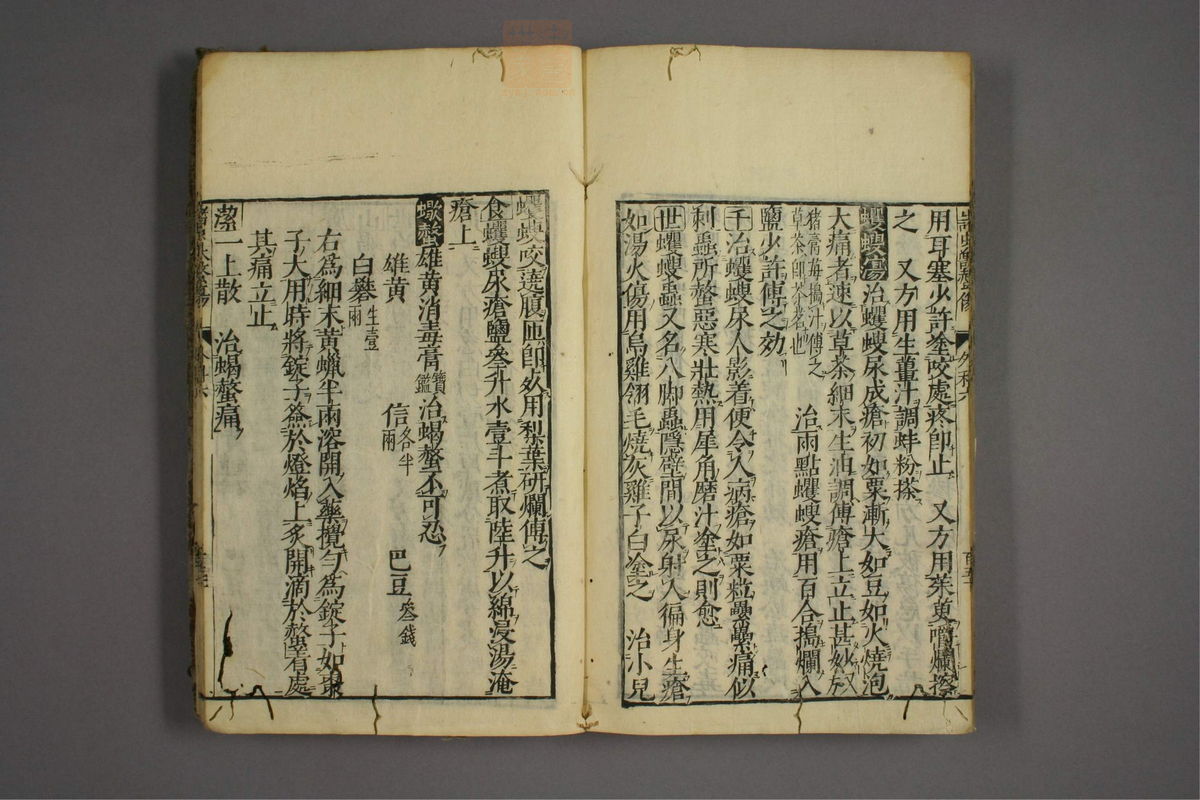 用耳塞少許塗咬處疼即止 又方用茱萸嚼爛擦
之 又方用生薑汁調蚌粉搽
蠼螋湯治蠼螋尿成瘡初如粟漸大如豆如火燒泡
大痛者速以草茶細末生油調傅瘡上立止甚妙又方
猪膏苺搗汁傅之
草茶即茶茗也 治兩點蠼螋瘡用百合搗爛入
鹽少許傅之効
千治蠼螋尿人影着便令人病瘡如粟粒纍纍痛似
刺蟲所螫惡寒壯熱用犀角磨汁塗之則愈
世蠼螋蟲又名八脚蟲隱壁間以尿射人徧身生瘡
如湯火傷用烏雞翎毛燒灰雞子白塗之 治小兒
蠼螋咬遶腹匝即死用梨葉研爛傅之
食蠼螋尿瘡鹽叄升水壹斗煮取陸升以綿浸湯淹
瘡上
蠍螫雄黄消毒膏寶鑑治蝎螫不可忍
雄黄 信各半兩 巴豆叄錢
白礬生壹兩
右爲細末黄蝋半兩溶開入藥攪勻爲錠子如棗
子大用時將錠子簽於燈焰上炙開滴於螫着處
其痛立止
潔一上散 治蝎螫痛